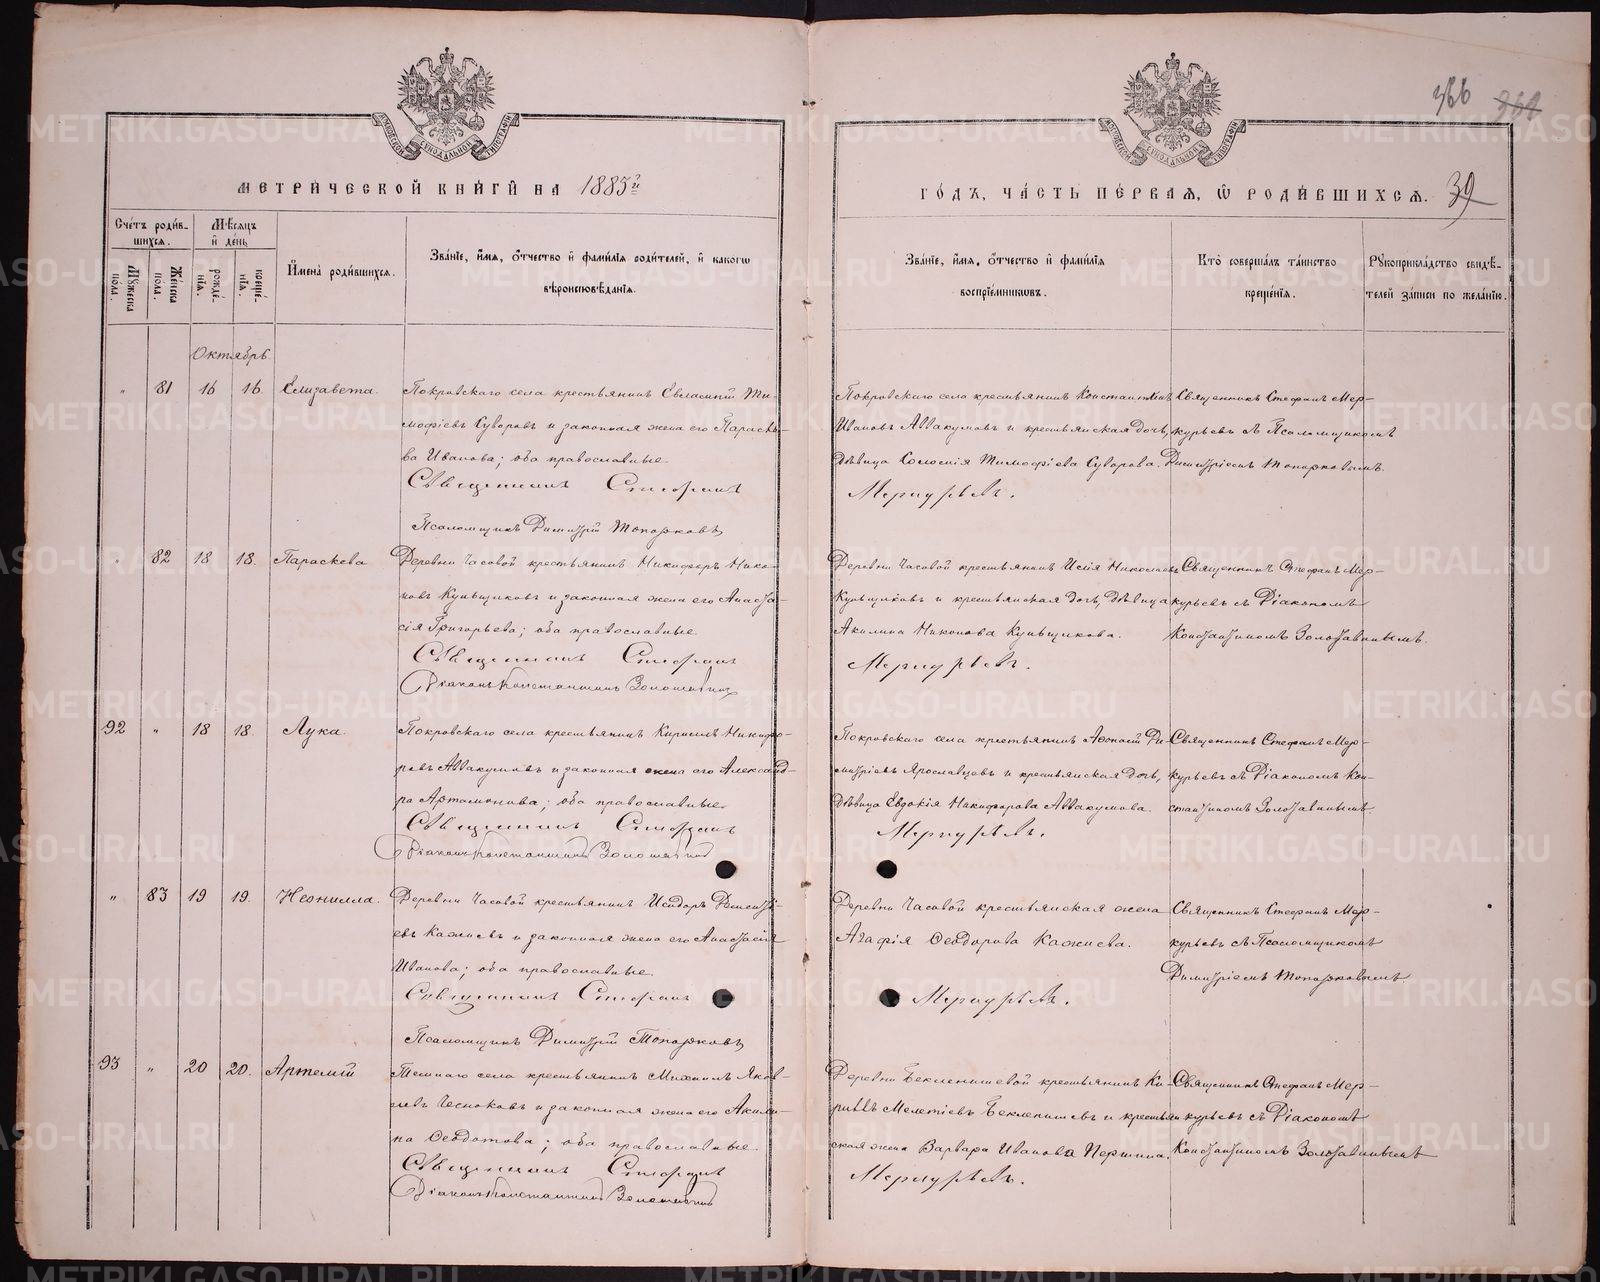 366 361
МЕТРИЧЕСКОЙ КНИГИ НА 1885й
ГОДЪ, ЧАСТЬ ПЕРВАЯ, Ѡ РОДИВШИХСЯ. 39
МОСКОВСКОЙ СѴНОДАЛЬНОЙ ТИПОГРАФІИ
МОСКОВСКОЙ СѴНОДАЛЬНОЙ ТИПОГРАФІИ
Счетъ родив-
шихся.
Мужеска пола.
Женска пола.
Мѣсяцъ
и день
рожде-
нія.
креще-
нія.
Имена родившихся.
Званіе, имя, отчество и фамилія родителей, и какогѡ
вѣроисповѣданія.
Званіе, имя, отчество и фамилія
воспріемниковъ.
Кто совершалъ таинство
крещенія.
Рукоприкладство свидѣ-
телей записи по желанію.
Октябрь.
" 81 16 16 Елизавета.
Покровскаго села крестьянинъ Евласпій Ти-
мофѣевъ Суворовъ и законная жена его Параскѣ-
ва Иванова; оба православные.
Священникъ Стефанъ
Псаломщикъ Димитрій Топорковъ
Покровскаго села крестьянинъ Константинъ
Ивановъ Аввакумовъ и крестьянская дочь,
дѣвица Соломія Тимофѣева Суворова.
Меркурьевъ.
Священникъ Стефанъ Мер-
курьевъ съ Псаломщикомъ
Димитріемъ Топорковымъ.
" 82 18 18. Параскева
Деревни Часовой крестьянинъ Никифоръ Нико-
новъ Кунщиковъ и законная жена его Анаста-
сія Григорьева; оба православные.
Священникъ Стефанъ
Діаконъ Константинъ Золотавинъ
Деревни Часовой крестьянинъ Исаія Николаевъ
Кунщиковъ и крестьянская дочь, дѣвица
Акилина Никонова Кунщикова.
Меркурьевъ.
Священникъ Стефанъ Мер-
курьевъ съ Діакономъ
Константиномъ Золотавинымъ.
92 " 18 18. Лука.
Покровскаго села крестьянинъ Кирилъ Никифо-
ровъ Аввакумовъ и законная жена его Александ-
ра Артамонова; оба православные.
Священникъ Стефанъ
Діаконъ Константинъ Золотавинъ
Покровскаго села крестьянинъ Аѳонасій Ди-
митріевъ Ярославцевъ и крестьянская дочь,
дѣвица Евдокія Никифорова Аввакумова.
Меркурьевъ.
Священникъ Стефанъ Мер-
курьевъ съ Діакономъ Кон-
стантиномъ Золотавинымъ.
" 83 19 19. Неонилла.
Деревни Часовой крестьянинъ Исидоръ Дементі-
евъ Кажаевъ и законная жена его Анастасія
Иванова; оба православные.
Священникъ Стефанъ
Псаломщикъ Димитрій Топорковъ
Деревни Часовой крестьянская жена
Агафія Ѳеодорова Кажаева.
Меркурьевъ.
Священникъ Стефанъ Мер-
курьевъ съ Псаломщикомъ
Димитріемъ Топорковымъ.
93 " 20 20. Артемій
села крестьянинъ Михаилъ Яков-
левъ Чесноковъ и законная жена его Акили-
на Ѳеодотова; оба православные.
Священникъ Стефанъ
Діаконъ Константинъ Золотавинъ
Деревни Бекленищевой крестьянинъ Ки-
риллъ Мелетіевъ Бекленищевъ и крестьян-
ская жена Варвара Иванова Першина.
Меркурьевъ.
Священникъ Стефанъ Мер-
курьевъ съ Діакономъ
Константиномъ Золотавинымъ
METRIKI.GASO-URAL.RU